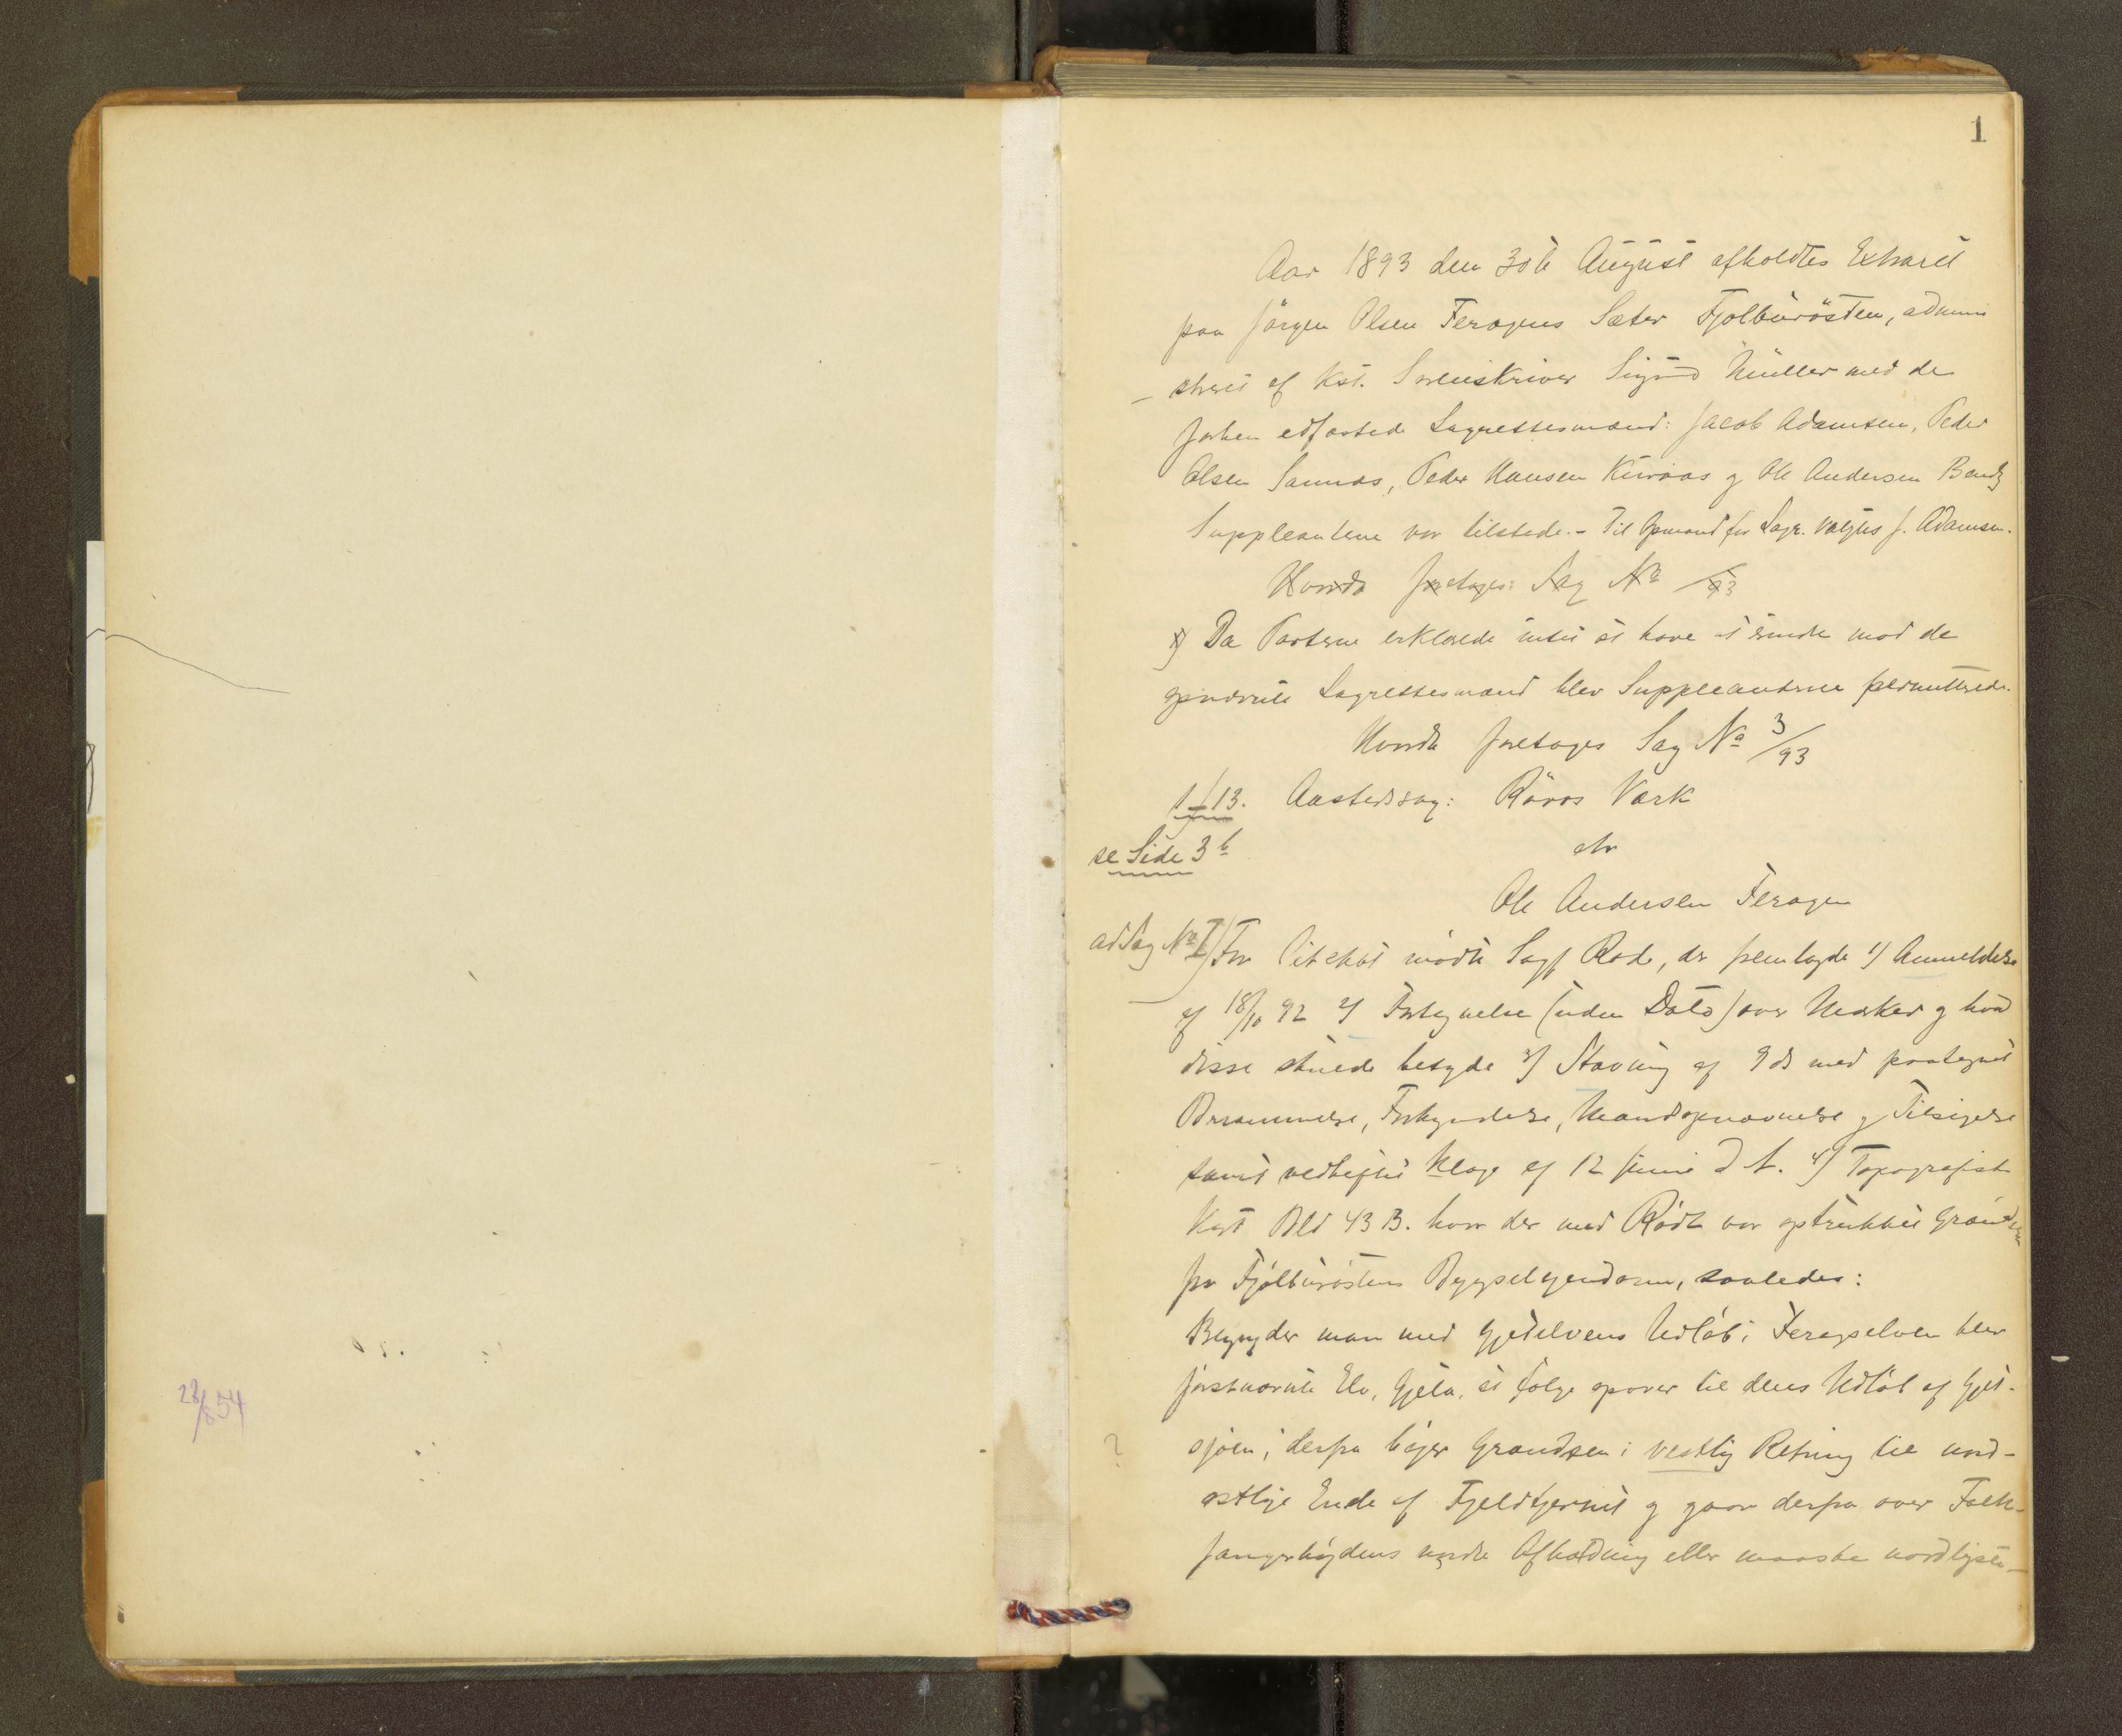 1
Aar 1893 den 30te August afholdtes Extraret
paa Jörgen Olsen Feragens Sæter Fjolbürösten, admini
streret af Kst. Sorenskriver Sigurd Müller med de
forhen edfæstede Lagrettesmænd: Jacob Adamsen, Peder
Olsen Sannæs, Peder Hansen Kuraas og Ole Andersen
Suppleanterne var tilstede. – Til Opmand for Lagr. valgtes J. Adamsen.
Hvorda foretages: Sag No /93
x) Da Parterne erklærede intet at have at erindre mod de
opnævnte Lagrettesmænd blev Suppleanterne permitterede.
Hvorda foretages Sag No 3/93
1/13. Aastedssag: Röros Værk
se Side 3b
ctr
Ole Andersen Feragen
ad Sag No I) For Citcten mödte Sagf Rode, der fremlagde 1) Anmeldelse
af 18/10 92 2) Fortegnelse (uden Dato) over Mærker og hvad
disse skulde betyde 3) Stævning af 9 ds med paategnet
Berammelse, Forkyndelse, Mandsopnævnelse og Tilsigelse
samt vedheftet Klage af 12 Juni d A. 4) Topografisk
Kart Bld 43 B. hvor der med Rödt var optrukket Grændsen
for Fjölbüröstens Bygselejendom, saaledes:
Begynder man med Gjetelvens Udlöb i Feragselven blev
förstnævnte Elv, Gjeta, at fölge opover til dens Udlöb af Gjet-
sjöen; derfra böjer Grændsen i vestlig Retning til nord-
? östlige Ende af Fjeldtjernet og gaar derfra over Falk-
fangerhöjdens nordre Afhældning eller maaske nordligste
28/8 54